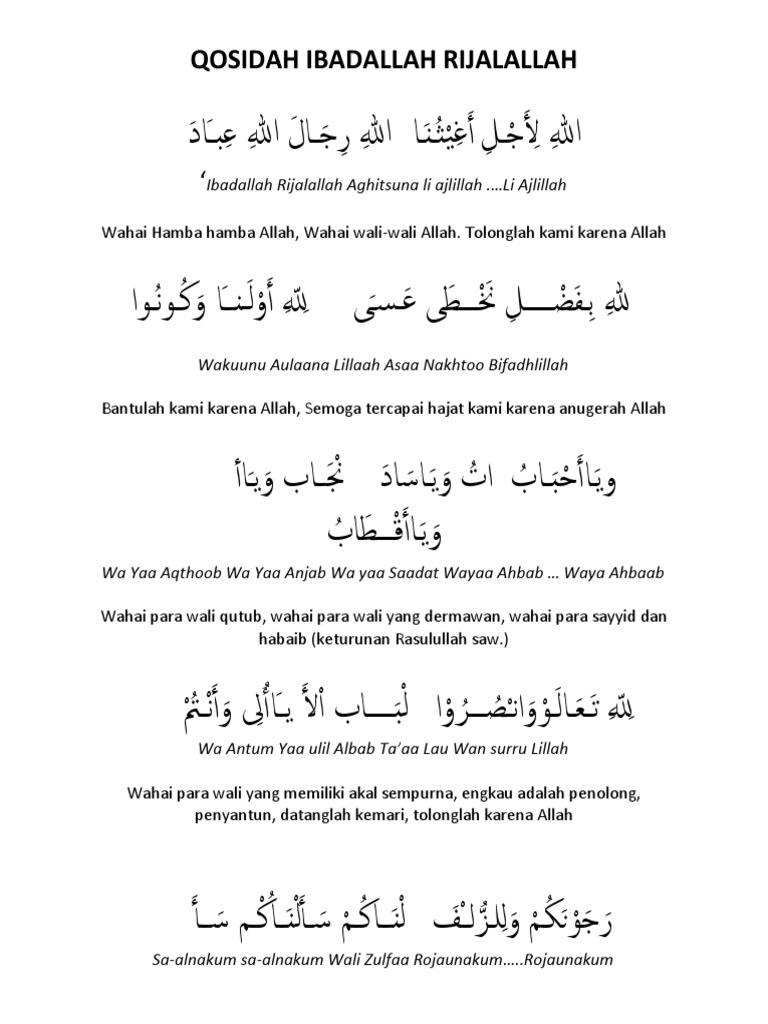 QOSIDAH IBADALLAH RIJALALLAH
اللهِ لِأَجْـلِ أَغِيْثُـنَـا اللهِ رِجَـالَ اللهِ عِبَـادَ
‘Ibadallah Rijalallah Aghitsuna li ajlillah ....Li Ajlillah
Wahai Hamba hamba Allah, Wahai wali-wali Allah. Tolonglah kami karena Allah
للهِ بِـفَـضْـــلِ نَخْــطَـى عَـسَـى لِلّهِ أَوْلَـنَـا وَكُـونُـوا
Wakuunu Aulaana Lillaah Asaa Nakhtoo Bifadhlillah
Bantulah kami karena Allah, Semoga tercapai hajat kami karena anugerah Allah
ويَاأَحْبَـابُ اتُ وَيَـاسَـادَ نْجَـاب وَيَـاأ
وَيَاأَقْــطَـابُ
Wa Yaa Aqthoob Wa Yaa Anjab Wa yaa Saadat Wayaa Ahbab ... Waya Ahbaab
Wahai para wali qutub, wahai para wali yang dermawan, wahai para sayyid dan
habaib (keturunan Rasulullah saw.)
لِلّهِ تَـعَـالَـوْوَانْـصُــرُوْا لْبَــــاب اْلأَ يــَاأُلِى وَأَنْـتُمْ
Wa Antum Yaa ulil Albab Ta’aa Lau Wan surru Lillah
Wahai para wali yang memiliki akal sempurna, engkau adalah penolong,
penyantun, datanglah kemari, tolonglah karena Allah
رَجَوْنَكُمْ وَلِلزُّلْـفَ لْنَـاكُمْ سَـأَلْنَـاكُـم سَــأَ
Sa-alnakum sa-alnakum Wali Zulfaa Rojaunakum.....Rojaunakum